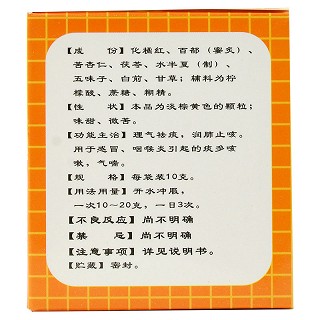 【成　份】化橘红、百部（蜜炙）、
苦杏仁、茯苓、水半夏（制）、
五味子、白前、甘草；辅料为柠
檬酸、蔗糖、糊精。
【性　状】本品为淡棕黄色的颗粒；
味甜、微苦。
【功能主治】理气祛痰，润肺止咳。
用于感冒、咽喉炎引起的痰多咳
嗽，气喘。
【规　格】每袋装10克。
【用法用量】开水冲服，
一次10~20克，一日3次。
【不良反应】尚不明确
【禁　忌】尚不明确
【注意事项】详见说明书。
【贮藏】密封。